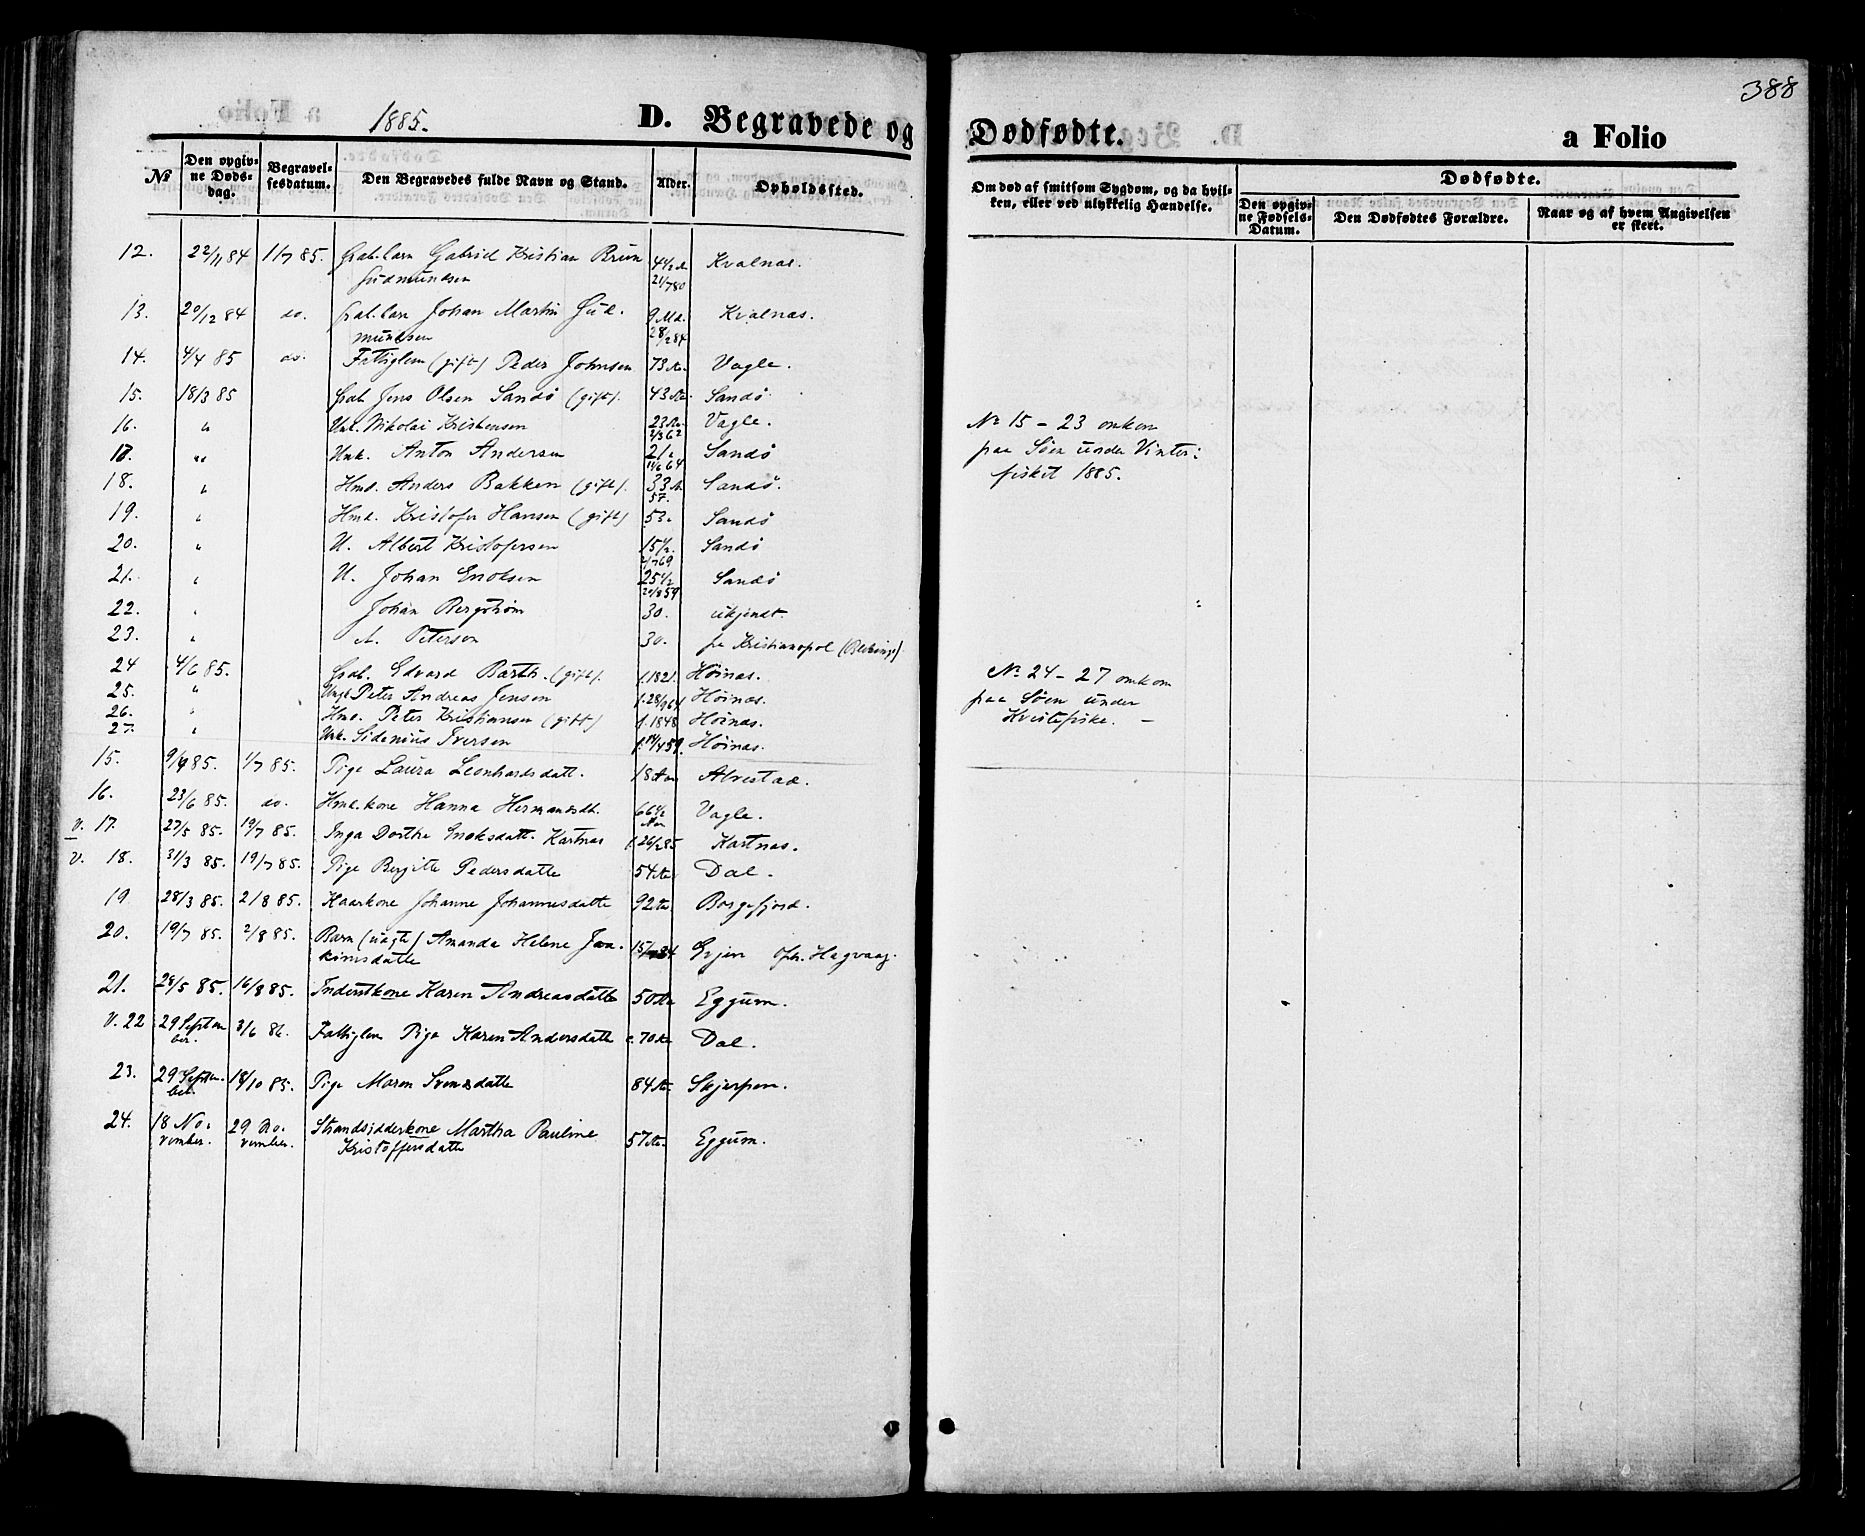 388
1885.
D. Begravede og Dødfødte. a Folio
№ Den opgivne Dødsdag. Begravelsesdatum. Den Begravedes fulde Navn og Stand. Alder. Opholdssted.
Om død af smitsom Sygdom, og da hvilken, eller ved ulykkelig Hændelse.
Dødfødte.
Den opgivne Fødsels-Datum. Den Dødfødtes Forældre. Naar og af hvem Angivelsen er skeet.
12. 22/11 84 11/7 85. Gabriel Kristian Brun 4 1/2 A Kvalnæs.
Gudmundsen 21/7 80
13. 20/12 84 do. Johan Martin Gud- 9 Md. Kvalnæs.
mundsen 28/2 84
14. 4/4 85 do. Fattiglem (gift) Peder Johnsen 73 Aar Vagle.
15. 18/3 85 Jens Olsen Sandö (gift). 43 Aar Sandö.
16. " Unk. Nikolai Kristensen 23 Aar. Vagle.
2/3 62
17. " Unk. Anton Andersen 21 Sandö
11/6 64
18. " Hmd. Anders Bakken (gift). 33 A Sandö.
57.
19. " Hmd. Kristofer Hansen (gift) 53. Sandö
20. " U. Albert Kristofersen 15 1/2. Sandö
2/7 69
21. " U. Johan Enoksen 25 1/2 Sandö
20/8 59
22. " Johan Bergström 30. ukjendt.
23. " A. Peterson 30. fra Kristianopol (Bleking)
24 4/6 85. Edvard Barth. (gift). f. 1821. Höinæs.
25. " Ungk Peter Andreas Jensen f. 28/9 64 Höinæs.
26. " Hmd. Peter Kristiansen (gift) f. 1848 Höinæs.
27. " Unk. Sidenius Iversen f. 14/4 59. Höinæs.
15. 9/4 85. 1/7 85. Pige Laura Leonhardsdatt. 18 Aar Alvestad.
16. 23/6 85. do. Hmd. kone Hanna Hermansdt. 66 1/2 Vagle.
Aar
v. 17. 27/5 85. 19/7 85. Inga Dorthe Enoksdatt. Kartnæs f. 26/2 85 Kartnæs.
v. 18. 31/3 85. 19/7 85. Pige Bergitte Pedersdatte 54 Aar Dal.
19. 28/3 85. 2/8 85. Kaarkone Johanne Johannesdatte 92 Aar Borgefjord.
20. 19/7 85. 2/8 85. Barn (uægte) Amanda Helene Joa- Erjen Oph. Hagvaag.
kimsdatte
21. 28/5 85. 16/8 85. Inderstkone Karen Andreasdatte 50 Aar Eggum.
V. 22 29 Septem 3/6 86. Fattiglem Pige Karen Andersdatte c. 70 Aar Dal.
ber.
23. 29 Septem- 18/10 85. Pige Maren Svendsdatte 84 Aar Skjerpen.
ber.
24. 18 No- 29 No- Strandsidderkone Martha Pauline 57 Aar. Eggum.
vember. vember. Kristoffersdatte
№ 15 – 23 omkom
paa Söen under Vinter:
fisket 1885.
№ 24 – 27 omkom
paa Söen under
fiske. –